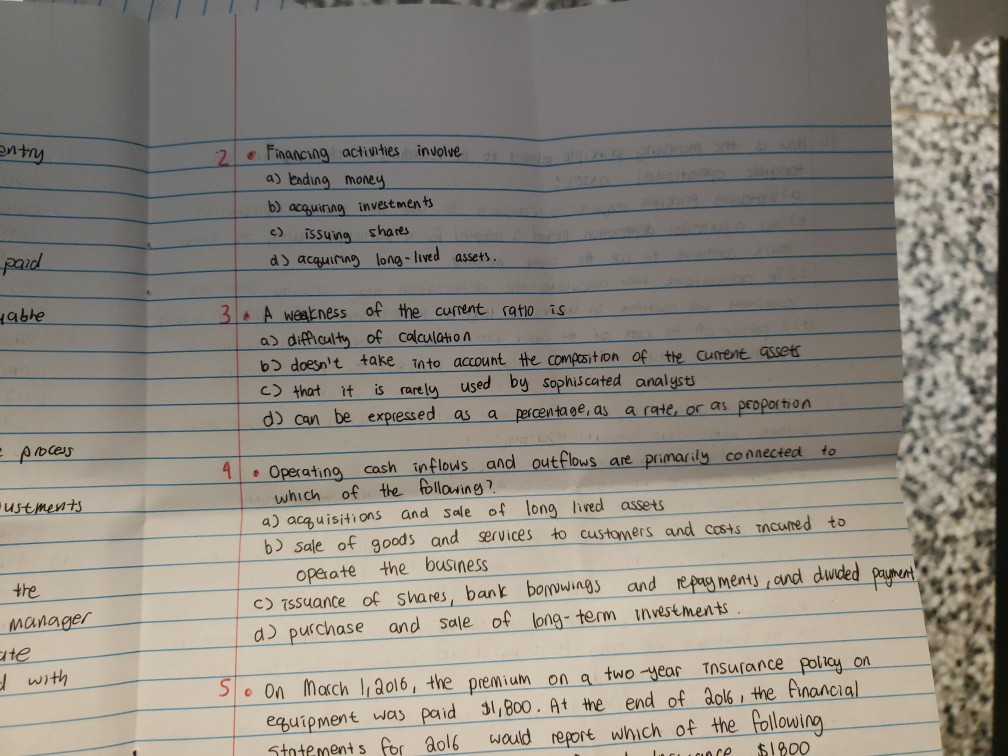 entry
paid
yable
process
ustments
the
manager
ate
d with
2 • Financing activities involve
a) lending money
b) acquiring investments
c) issuing shares
d) acquiring long-lived assets.
3 • A weakness of the current ratio is
a) difficulty of calculation
b) doesn't take into account the composition of the current assets
c) that it is rarely used by sophiscated analysts
d) can be expressed as a percentage, as a rate, or as proportion
4 • Operating cash inflows and outflows are primarily connected to
which of the following?
a) acquisitions and sale of long lived assets
b) sale of goods and services to customers and costs incurred to
operate the business
c) issuance of shares, bank borrowings and repayments, and divided payment
d) purchase and sale of long-term investments.
5 • On March 1, 2016, the premium on a two-year insurance policy on
equipment was paid $1,800. At the end of 2016, the financial
statements for 2016 would report which of the following
$1800